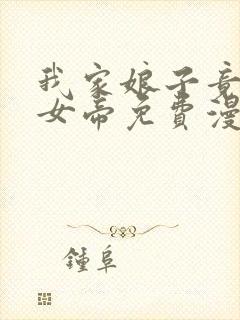 我家娘子竟
女帝免費漫
鍾阜